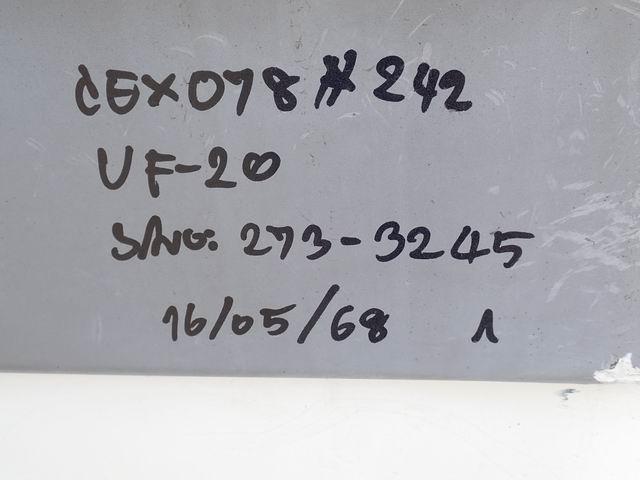 CEX078#242
UF-20
S/NO: 273-3245
16/05/68 1